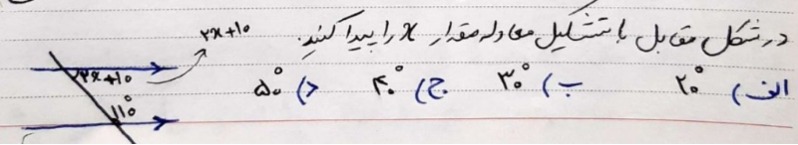 در شکل مقابل با تشکیل معادله مقدار x را پیدا کنید.
الف) ۲۰° ب) ۳۰° ج) ۴۰° د) ۵۰°
۲x+۱۰
۲x+۱۰
۱۱۰°